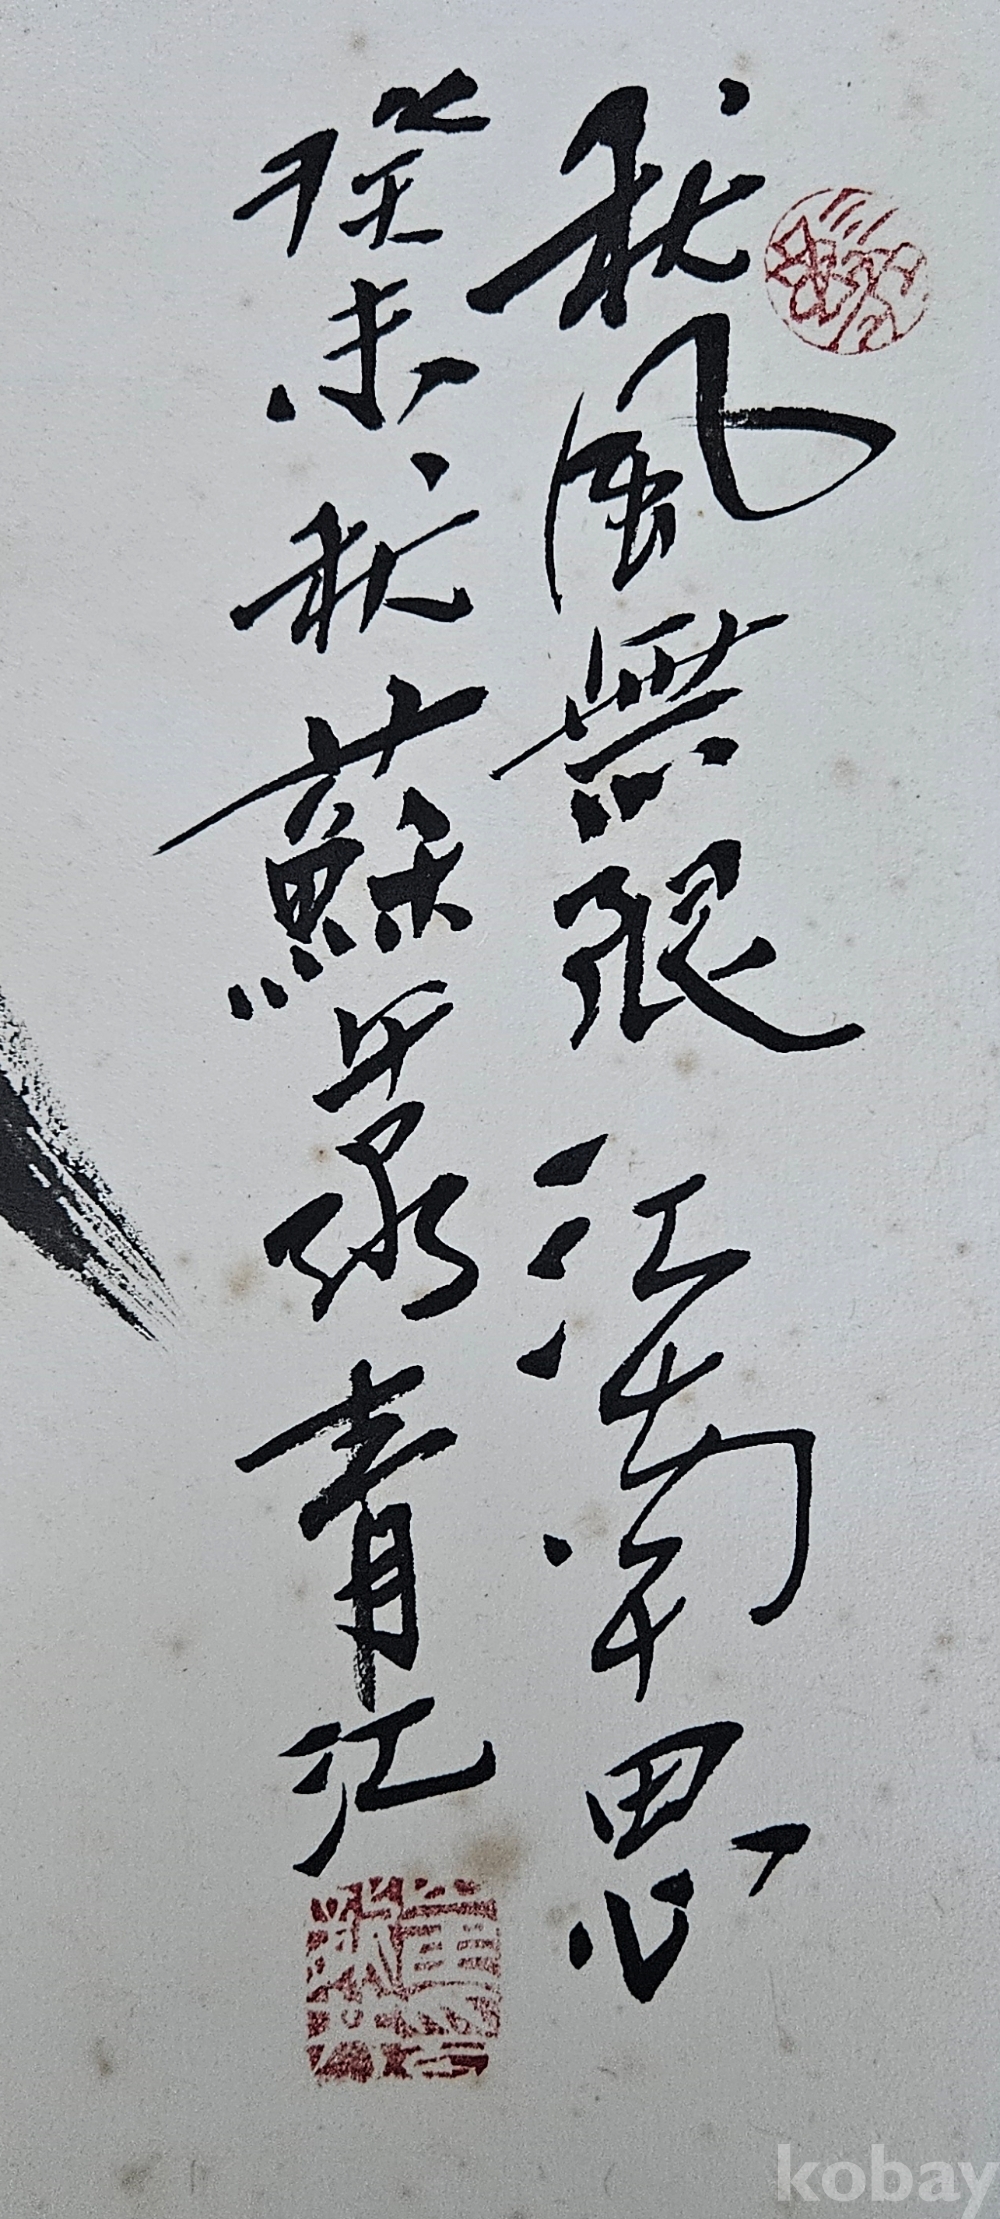 秋風無限江南思
癸未秋 蘇平 泉青江
kobay